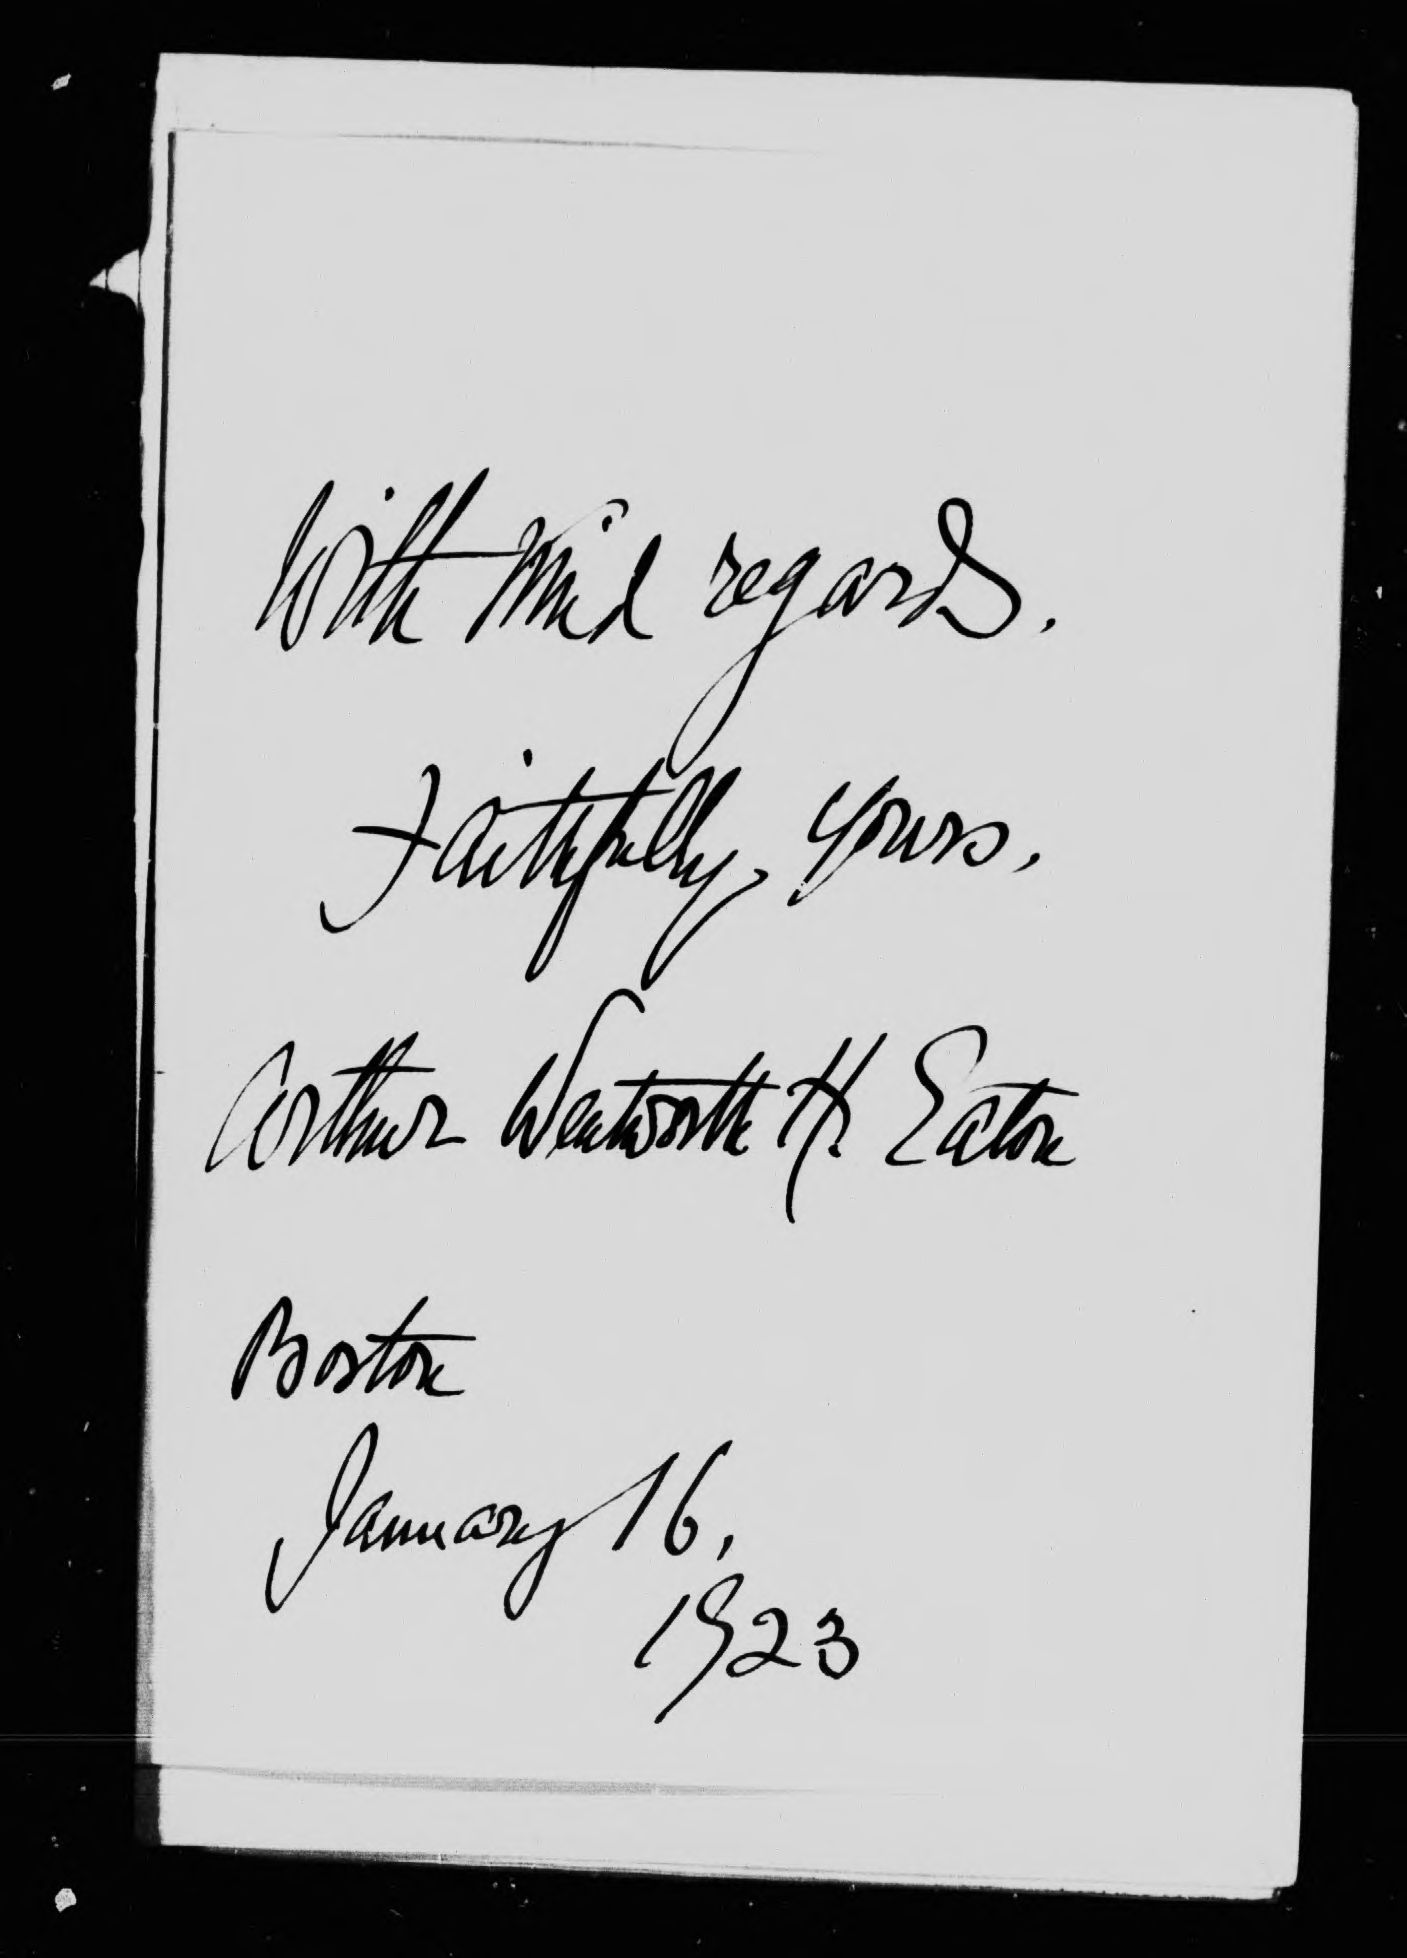 With kind regards.
Faithfully yours,
Arthur Wentworth H. Eaton
Boston
January 16,
1923